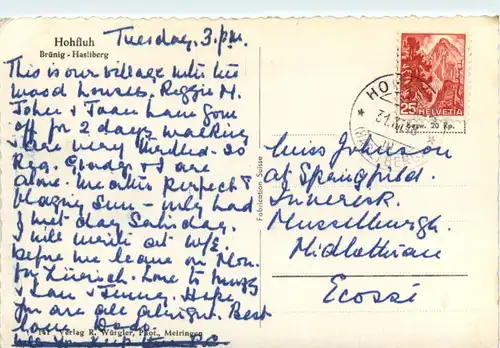 Hohfluh
Brünig - Hasliberg
Tuesday, 3.p.m.
This is our village with its
wood houses. Reggie M.
John & Joan have gone
off for 2 days walking
& are very thrilled - so
Reg. & I are
alone. Weather perfect &
blazing sun - only had
1 wet day Saturday.
I will write at W/E
before we leave on Mon.
for Zürich. Love to
& Ian & Jenny. Hope
you are all alright. Best
love
P.C.
747 Verlag R. Würgler, Phot., Meiringen
Fabrication Suisse
25 HELVETIA
HO
31.
Miss Johnson
at Springfield.
Inveresk.
Musselburgh.
Midlothian
Ecosse